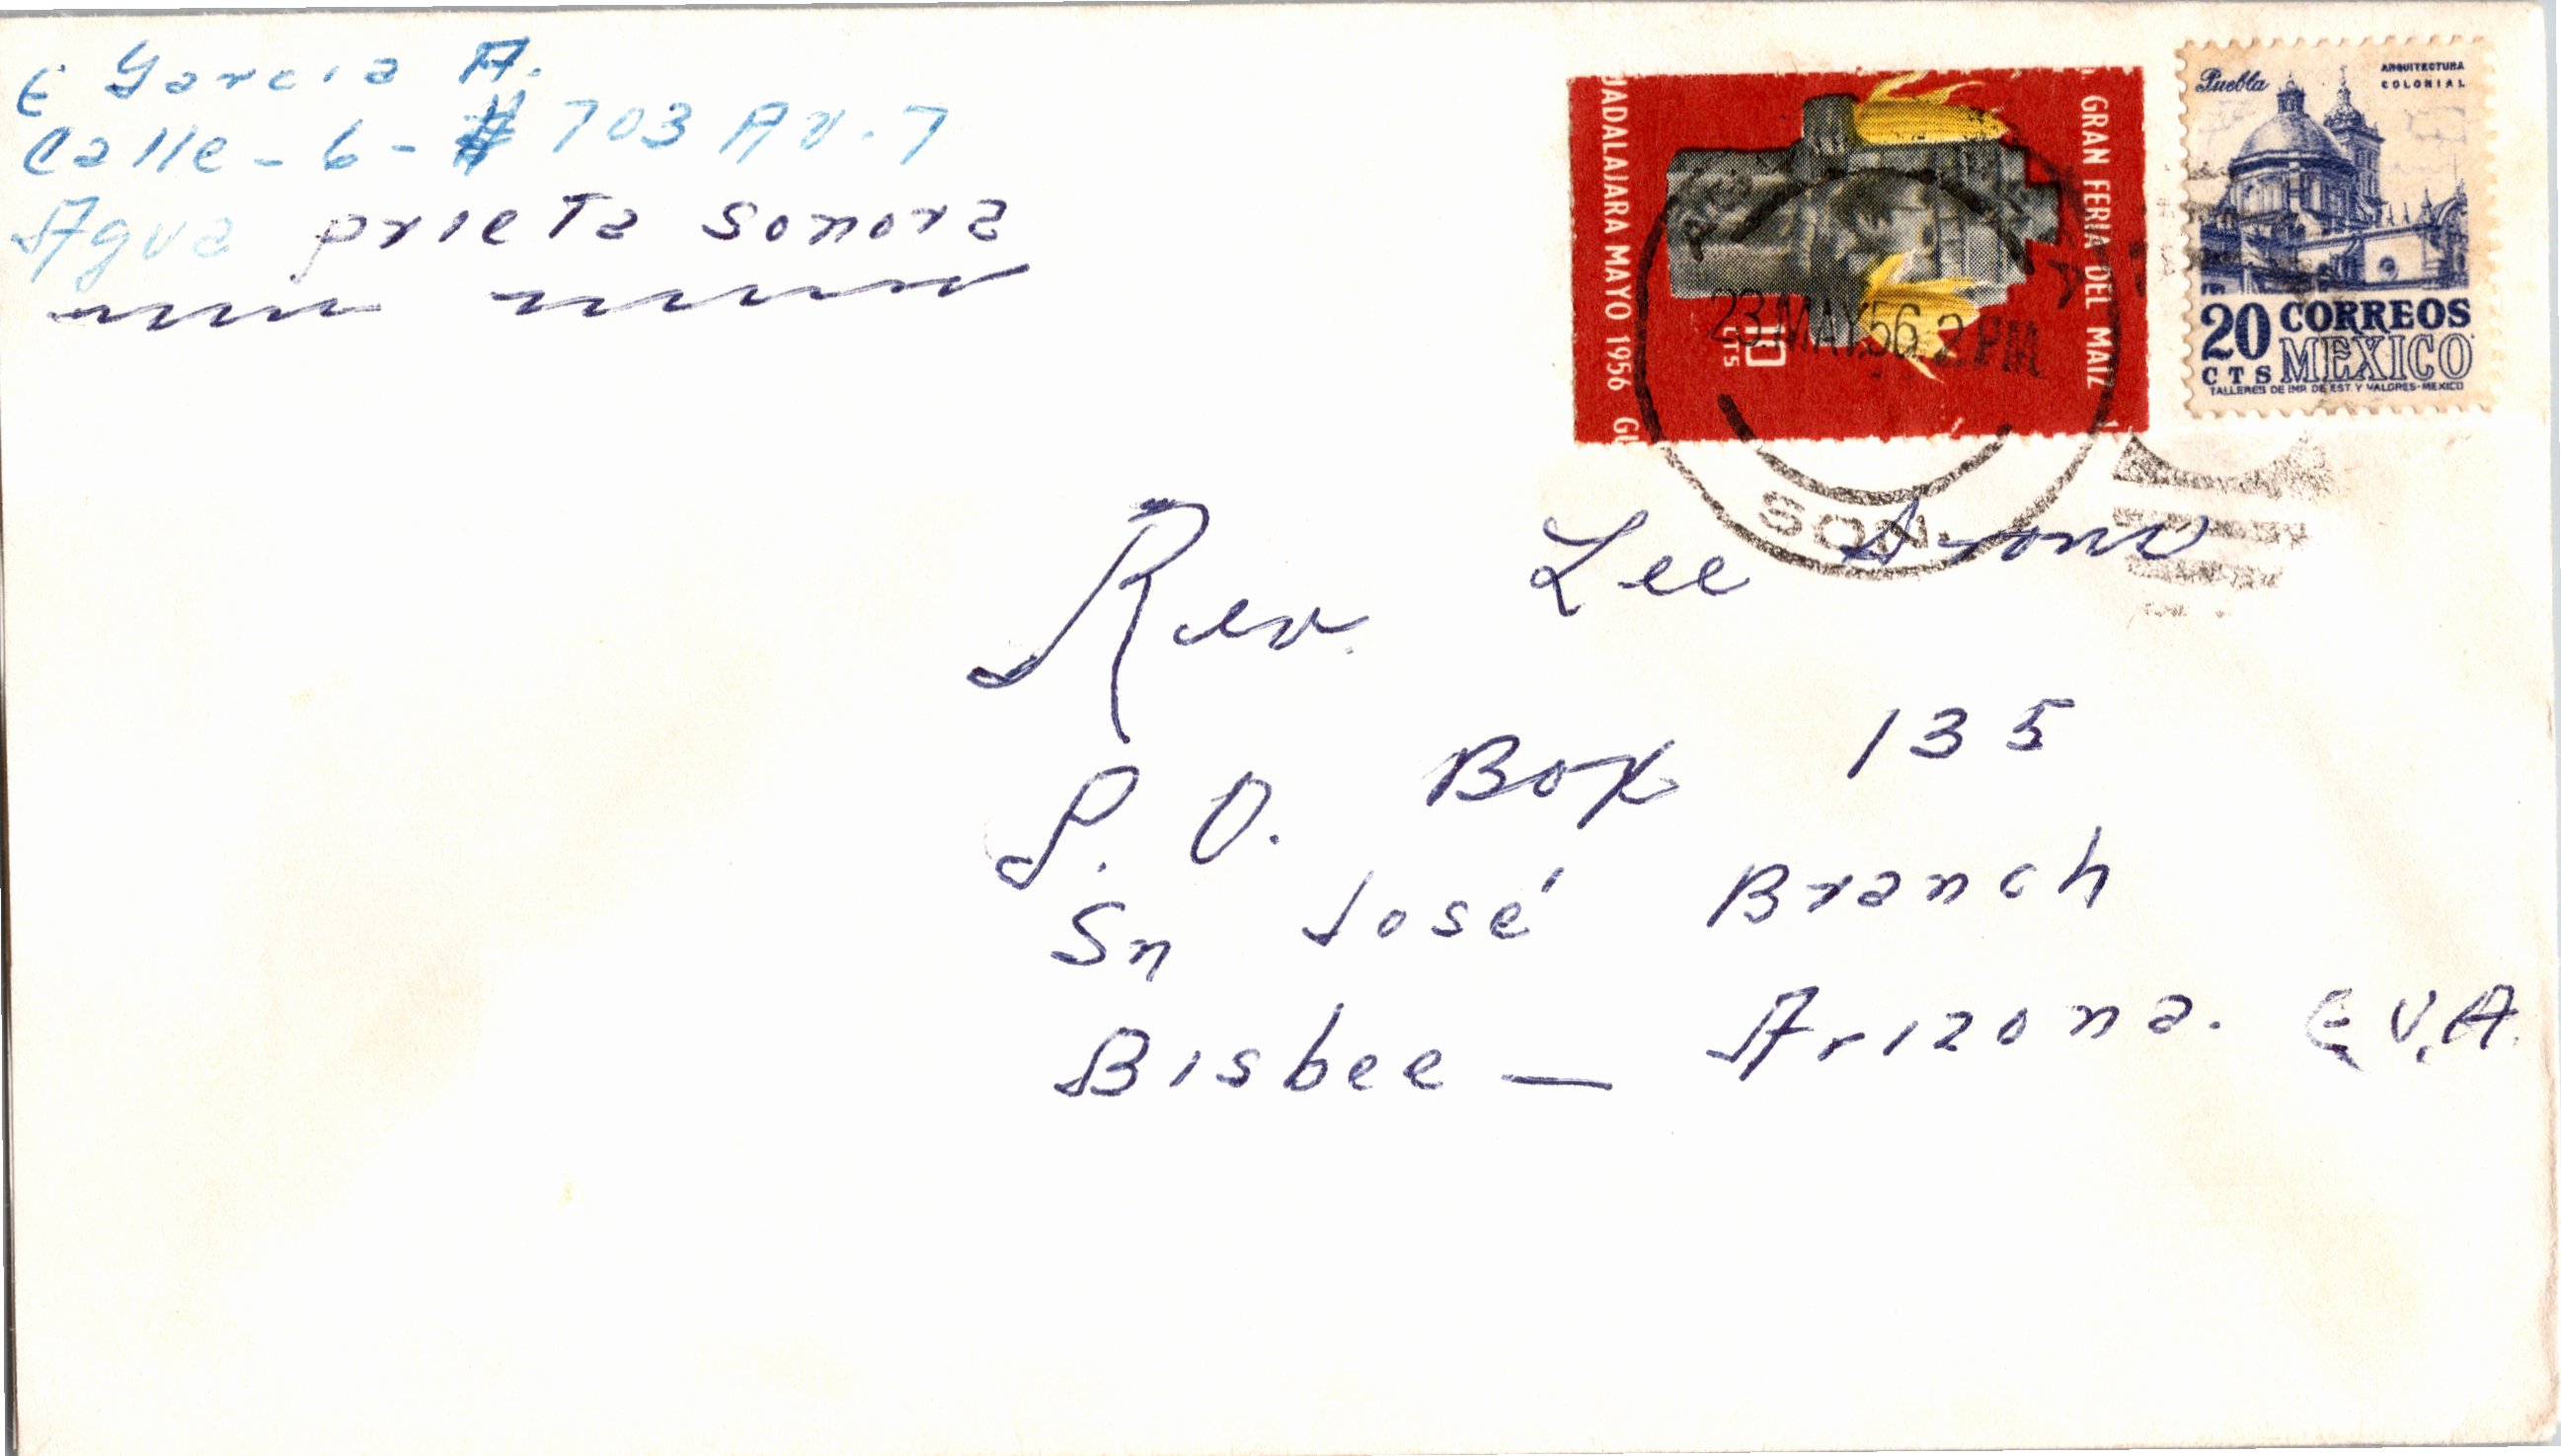 E Garcia A.
Calle - 6 - # 703 Av. 7
Agua prieta Sonora
GRAN FERIA DEL MAIZ
UADALAJARA MAYO 1956 GU
10
CTS
23.MAY.56.2 PM
SON.
Puebla
ARQUITECTURA
COLONIAL
20 CORREOS
CTS MEXICO
TALLERES DE IMP. DE EST. Y VALORES-MEXICO
Rev. Lee
P. O. Box 135
Sn José Branch
Bisbee — Arizona. E.U.A.